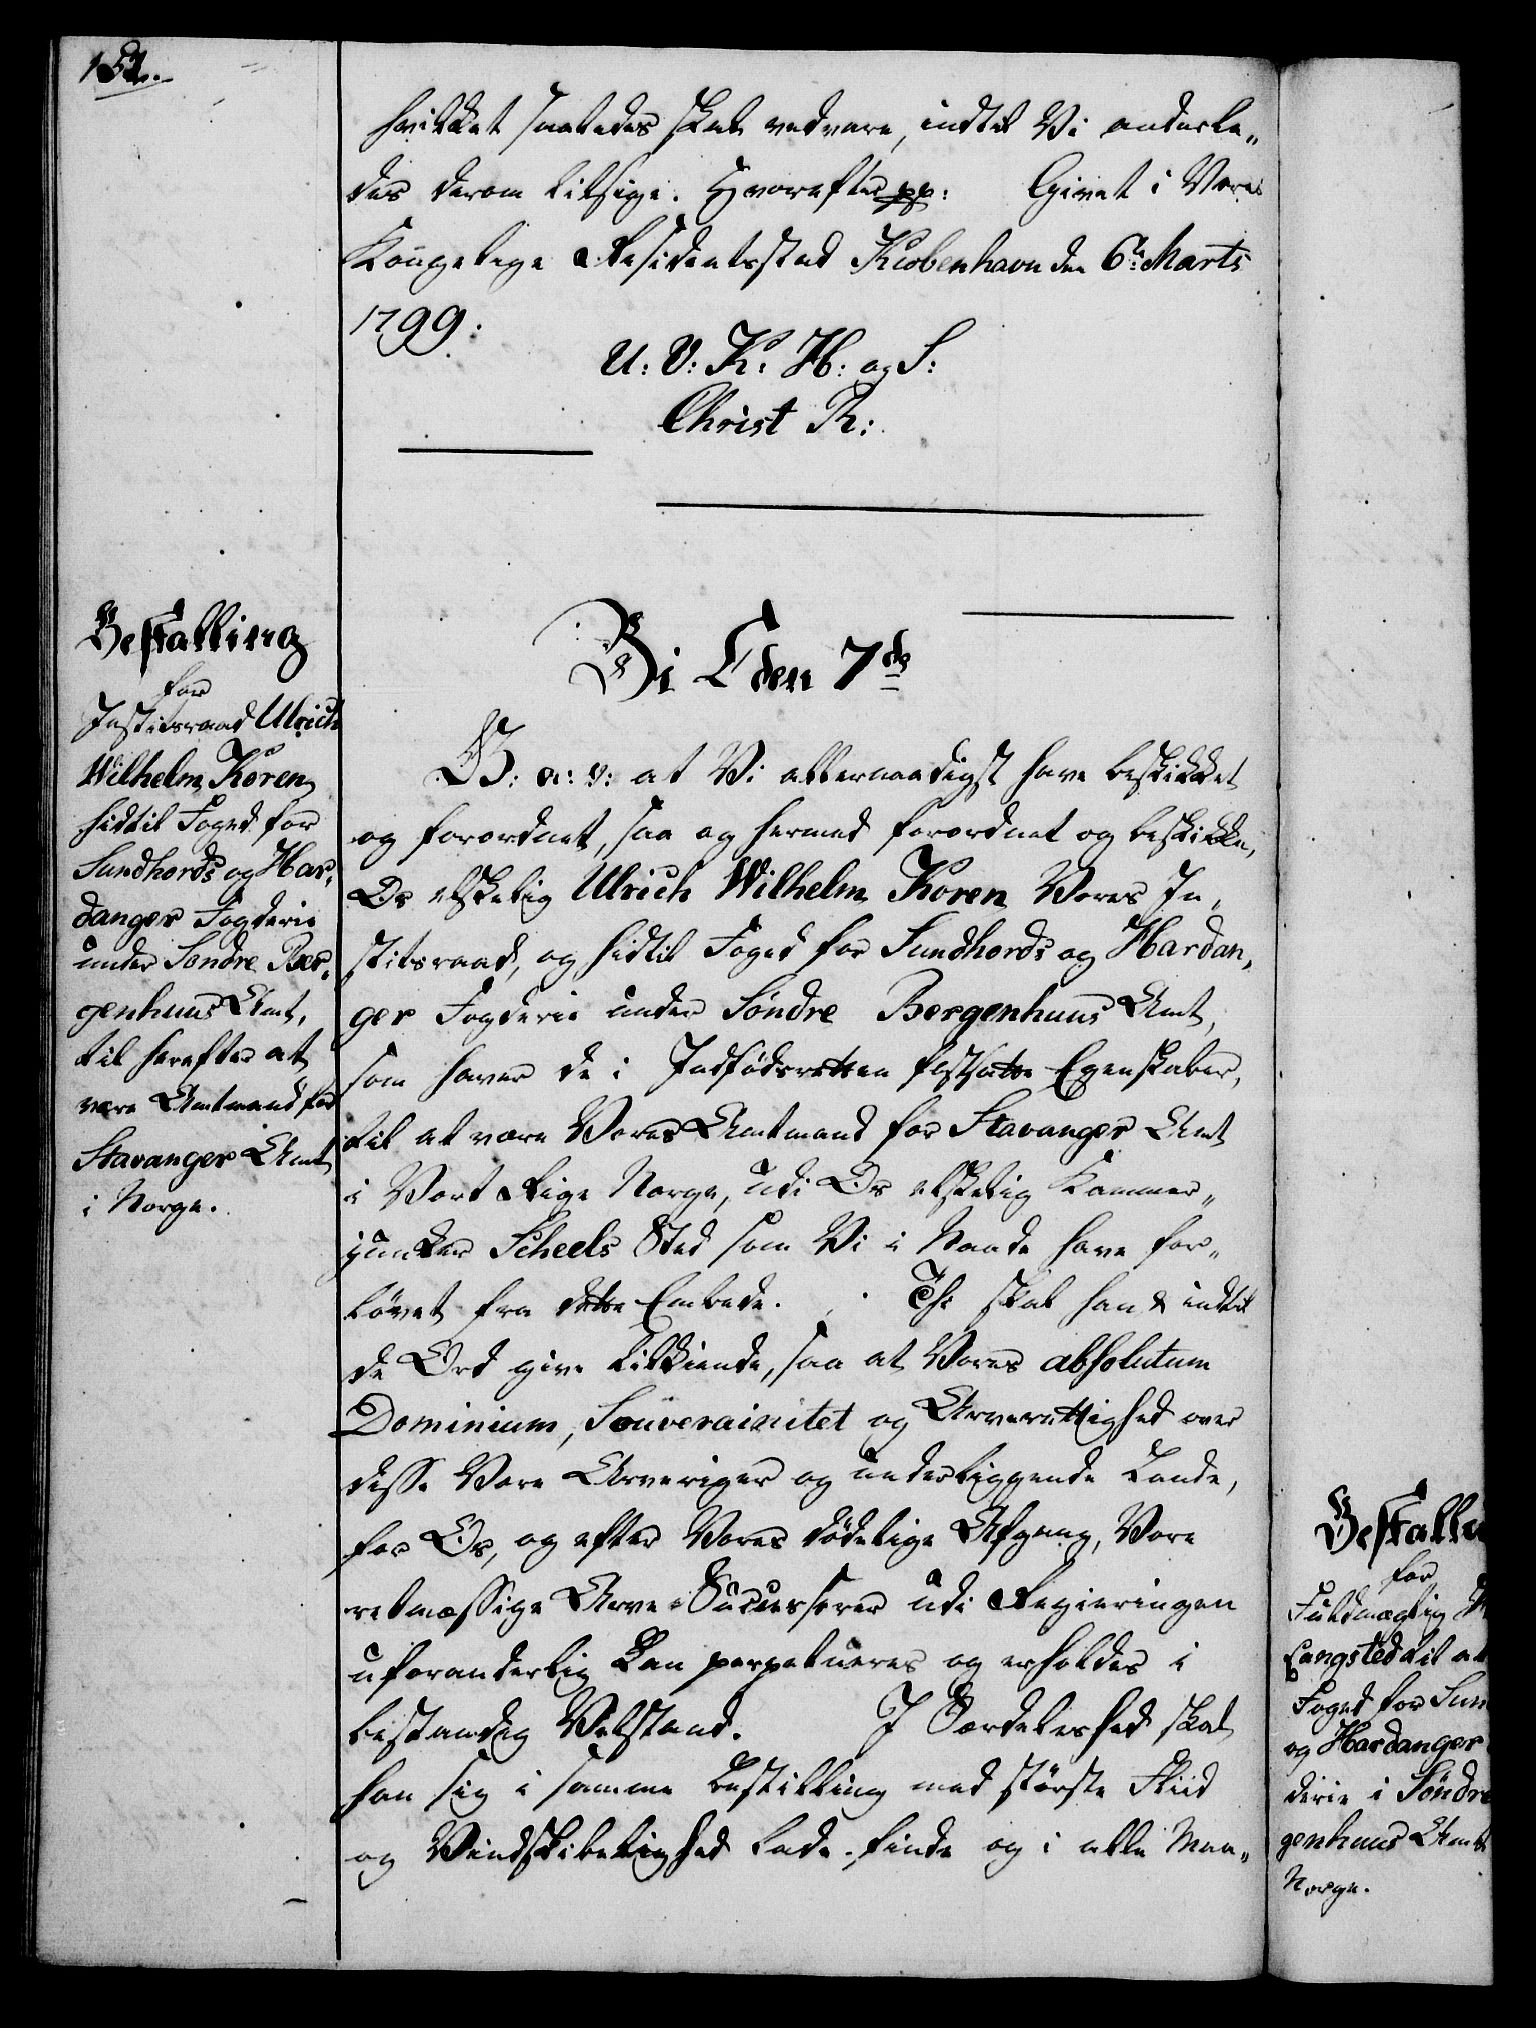 151.
hvilket saaledes skal vedvare, indtil Vi anderle„
des derom tilsige. Hvorefter pp: Givet i Vores
Kongelige Residentsstad Kiøbenhavn den 6te Marts
1799:
U: V: K: H: og S:
Christ R:
Bestalling
for
Justitsraad Ulrich
Wilhelm Koren
hidtil Foged for
Sundhords og Har„
danger Fogderie
under Søndre Ber„
genhuus Amt,
til herefter at
være Amtmand for
Stavanger Amt
i Norge.
Vi C den 7de
G: a: v: at Vi allernaadigst have beskikket
og forordnet, saa og hermed forordnet og beskikke,
Os elskelig Ulrich Wilhelm Koren Vores Ju„
stitsraad, og hidtil Foged for Sundhords og Hardan„
ger Fogderie under Søndre Bergenhuus Amt,
som haver de i Indfødsretten fastsatte Egenskaber,
til at være Vores Amtmand for Stavanger Amt
i Vort Rige Norge, udi Os elskelig Kammer„
junker Scheels Sted som Vi i Naade have for„
løvet fra dette Embede. Thi skal han & indtil
de Ord give tilkiende, saa at Vores absolutum
Dominium, Souverainitet og Arverettighed over
disse Vore Arveriger og underliggende Lande,
for Os, og efter Vores dødelige Afgang, Vore
retmæssige Arve-Successorer udi Regieringen
uforanderlig kan perpetueres og erholdes i
bestandig Velstand. I Særdeleshed skal
han sig i samme Bestilling med største Fliid
og Vindskibelighed lade finde og i alle Maa„
Bestallin
for
Fuldmægtig
Langsted til at
Foged for Sun
og Hardanger
derie i Søndre
genhuus Amt
Norge.